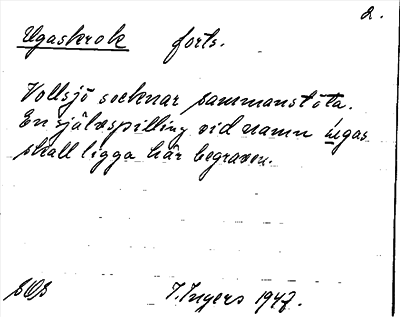 2.
Ugaskrok forts.
Vollsjö socknar sammanstöta.
En självspilling vid namn Ugas
skall ligga här begraven.
SOS I. Ingers 1947.